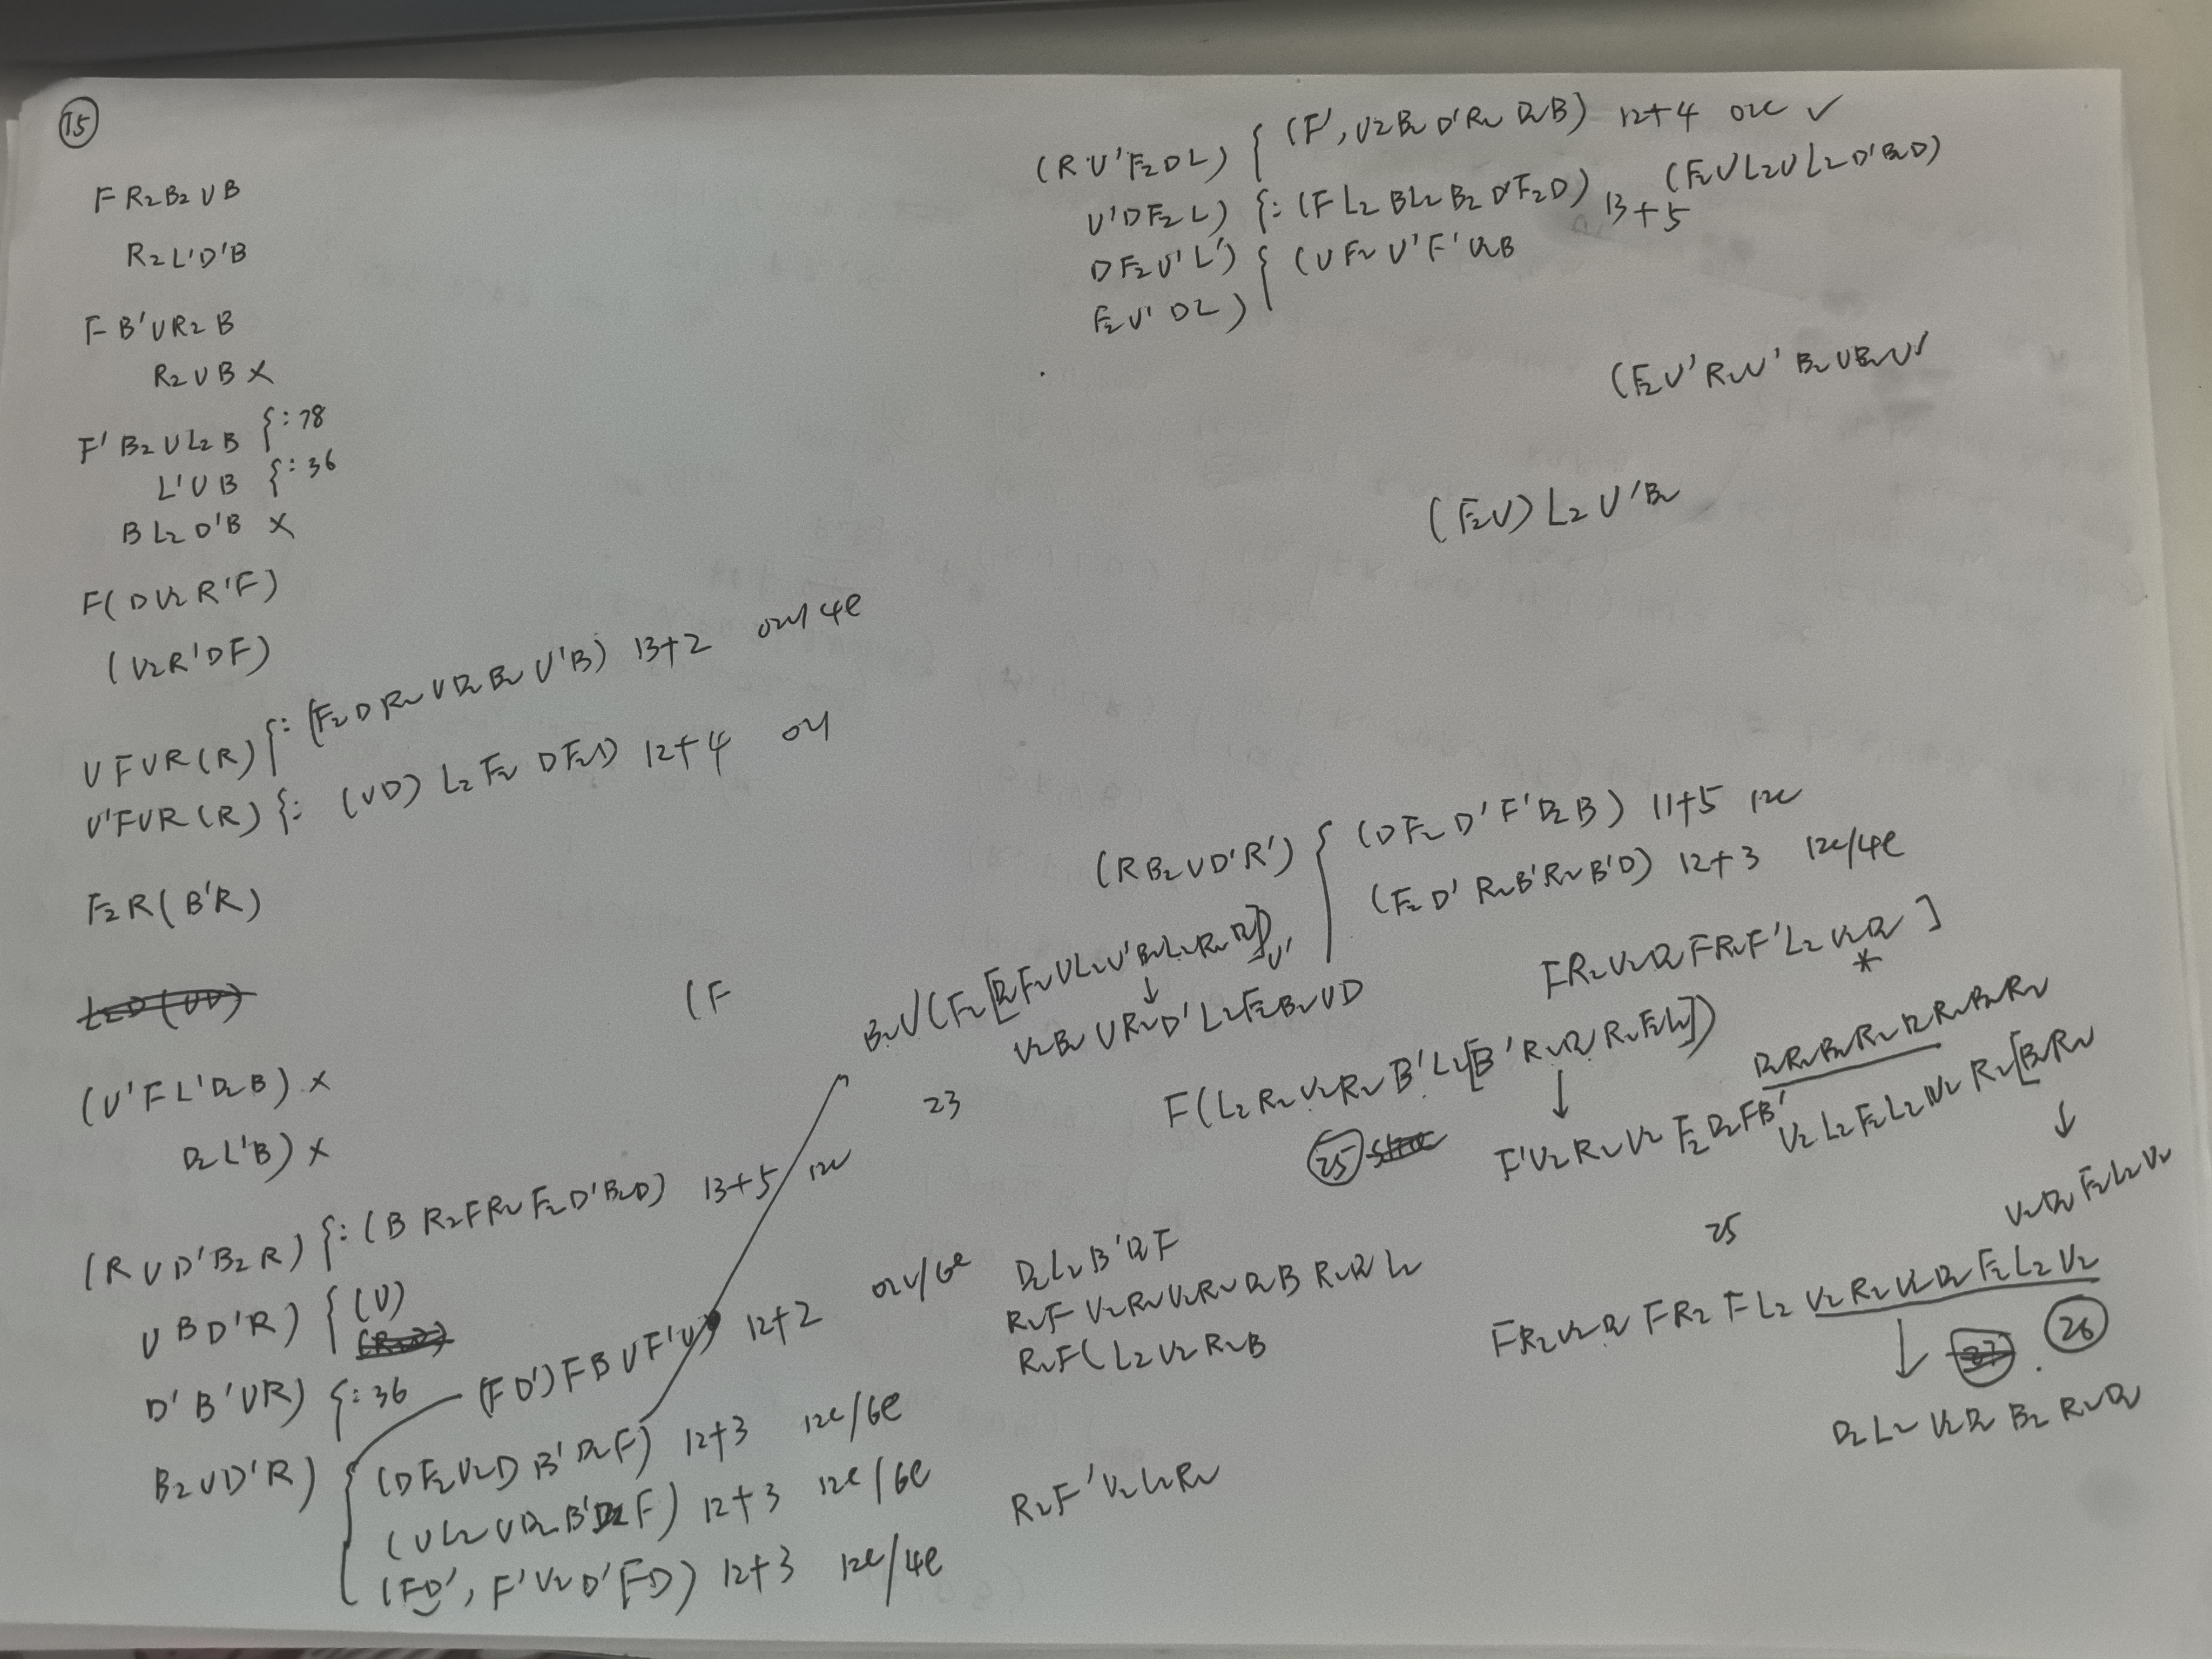 15
F R2 B2 U B
R2 L' D' B
F B' U R2 B
R2 U B ×
F' B2 U L2 B {: 78
L' U B {: 36
B L2 D' B ×
F ( D U2 R' F )
( U2 R' D F )
U F U R ( R ) {: ( F2 D R2 U D2 B2 U' B ) 13+2
U' F U R ( R ) {: ( U D ) L2 F2 D F2 D ) 12+4
F2 R ( B' R )
( U' F L' D2 B ) ×
D2 L' B ) ×
( R U D' B2 R ) {: ( B R2 F R2 F2 D' B2 D ) 13+5 12c
U B D' R ) { ( U )
D' B' U R ) {: 36
( F D' ) F B U F' U ) 12+2
B2 U D' R ) { ( D F2 U2 D B' D2 F ) 12+3 12c/6e
( U L2 U D2 B' D2 F ) 12+3 12c/6e
( F D' , F' U2 D' F D ) 12+3 12c/4e
( R U' F2 D L ) { ( F' , U2 B2 D' R2 D2 B ) 12+4 02c ✓
U' D F2 L ) {: ( F L2 B L2 B2 D' F2 D ) 13+5 ( F2 U L2 U L2 D' B2 D )
D F2 U' L' ) { ( U F2 U' F' U2 B
F2 U' D L )
( F2 U' R2 U' B2 U B2 U'
( F2 U ) L2 U' B2
( R B2 U D' R' ) { ( D F2 D' F' D2 B ) 11+5 12c
( F2 D' R2 B' R2 B' D ) 12+3 12c/4e
( F
B2 U ( F2 [ D2 F2 U L2 U' B2 L2 R2 D2 ] ) U'
↓
U2 B2 U R2 D' L2 F2 B2 U D
23
F R2 U2 D2 F R2 F' L2 U2 D2 ]
*
F ( L2 R2 U2 R2 B' L2 [ B' R2 D2 R2 F2 L2 ] )
↓
25
F' U2 R2 U2 F2 D2 F B'
D2 R2 B2 R2 D2 R2 B2 R2
U2 L2 F2 L2 U2 R2 [ B2 R2
↓
U2 D2 F2 L2 U2
25
D2 L2 B' D2 F
R2 F U2 R2 U2 R2 D2 B R2 D2 L2
R2 F ( L2 U2 R2 B
F R2 U2 D2 F R2 F L2 U2 R2 U2 D2 F2 L2 U2
↓
26
D2 L2 U2 D2 B2 R2 D2
R2 F' U2 L2 R2